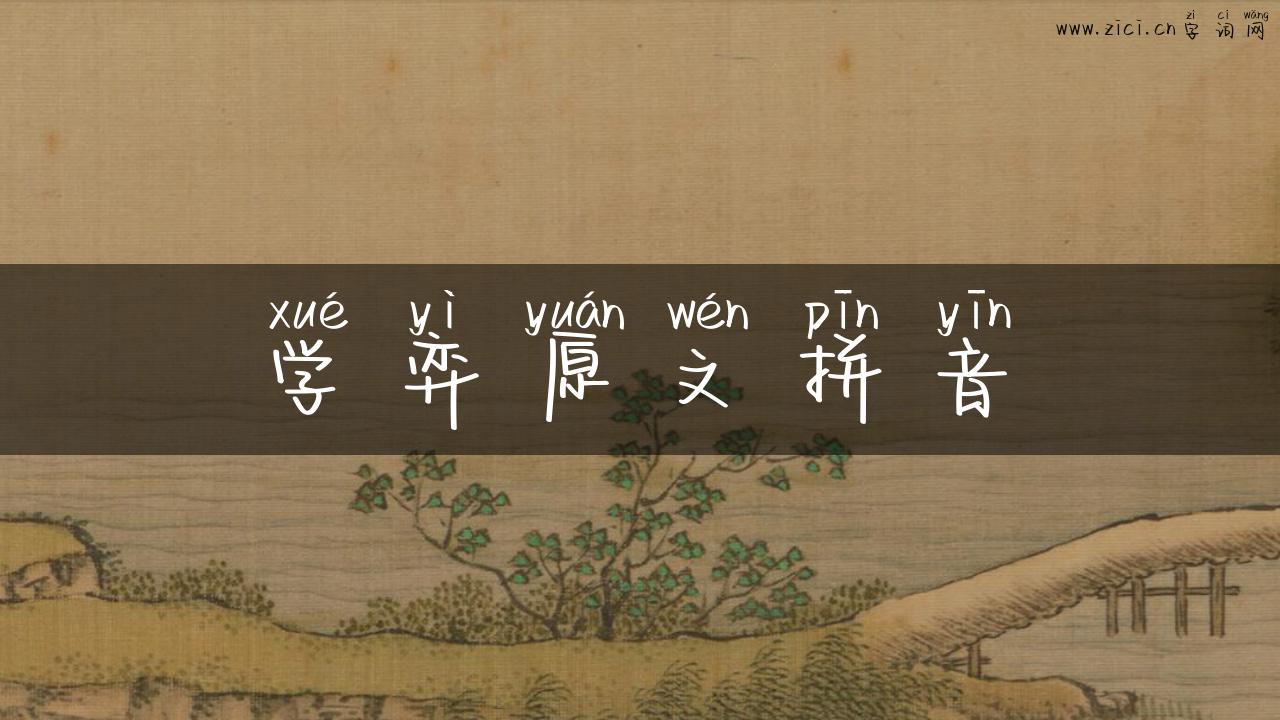 zì cí wǎng
www.zici.cn 字词网
xué yì yuán wén pīn yīn
学弈原文拼音